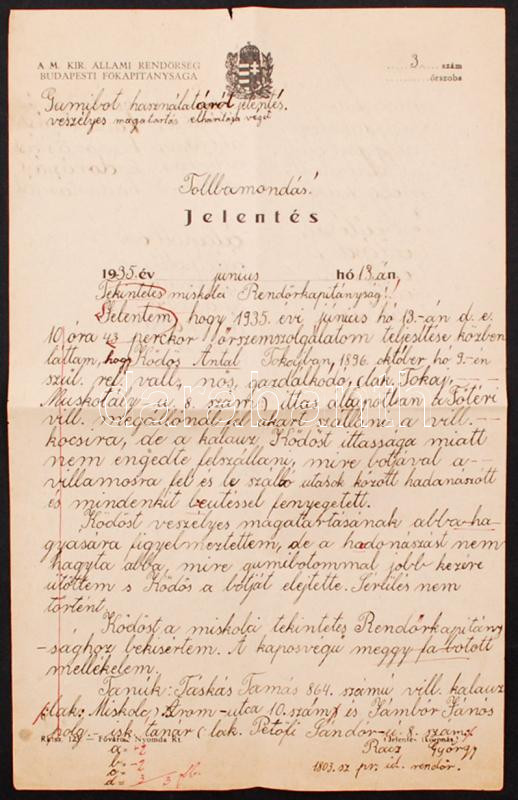 A M. KIR. ÁLLAMI RENDŐRSÉG
BUDAPESTI FŐKAPITÁNYSÁGA
3 szám
őrszoba
Gumibot használatáról jelentés.
veszélyes magatartás elhárítása végett
Tollbamondás!
Jelentés
1935. év június hó 13.án
Tekintetes miskolci Rendőrkapitányság!
Jelentem, hogy 1935. évi június hó 13.-án d. e.
10 óra 43 perckor őrszemszolgálatom teljesítése közben
láttam, hogy Ködös Antal Tokajban, 1896. október hó 9.-én
szül. ref. vall., nős, gazdálkodó, (lak. Tokaj,
-u. 8. szám) ittas állapotban a Főtéri
vill. megállónál fel akart szállani a vill.-
kocsira, de a kalauz Ködöst ittassága miatt
nem engedte felszállani, mire botjával a
villamosra fel és le szálló utasok között hadonászott
és mindenkit beütéssel fenyegetett.
Ködöst veszélyes magatartásának abbaha-
gyására figyelmeztettem, de a hadonászást nem
hagyta abba, mire gumibotommal jobb kezére
ütöttem s Ködös a botját elejtette. Sérülés nem
történt.
Ködöst a miskolci tekintetes Rendőrkapitány-
sághoz bekísértem. A kaposvégű meggyfa botot
mellékelem.
Tanúk: Táskás Tamás 864. számú vill. kalauz
(lak. Miskolc, Árom-utca 10. szám) és Jámbor János
polg.- isk. tanár (lak. Petőfi Sándor-u. 8. szám)
R. sz. 123. — Főváros Nyomda Rt.
Jelentés
Rácz György
1803. sz. pr. id. rendőr.
a = -2
b = -2
c =
d = 3